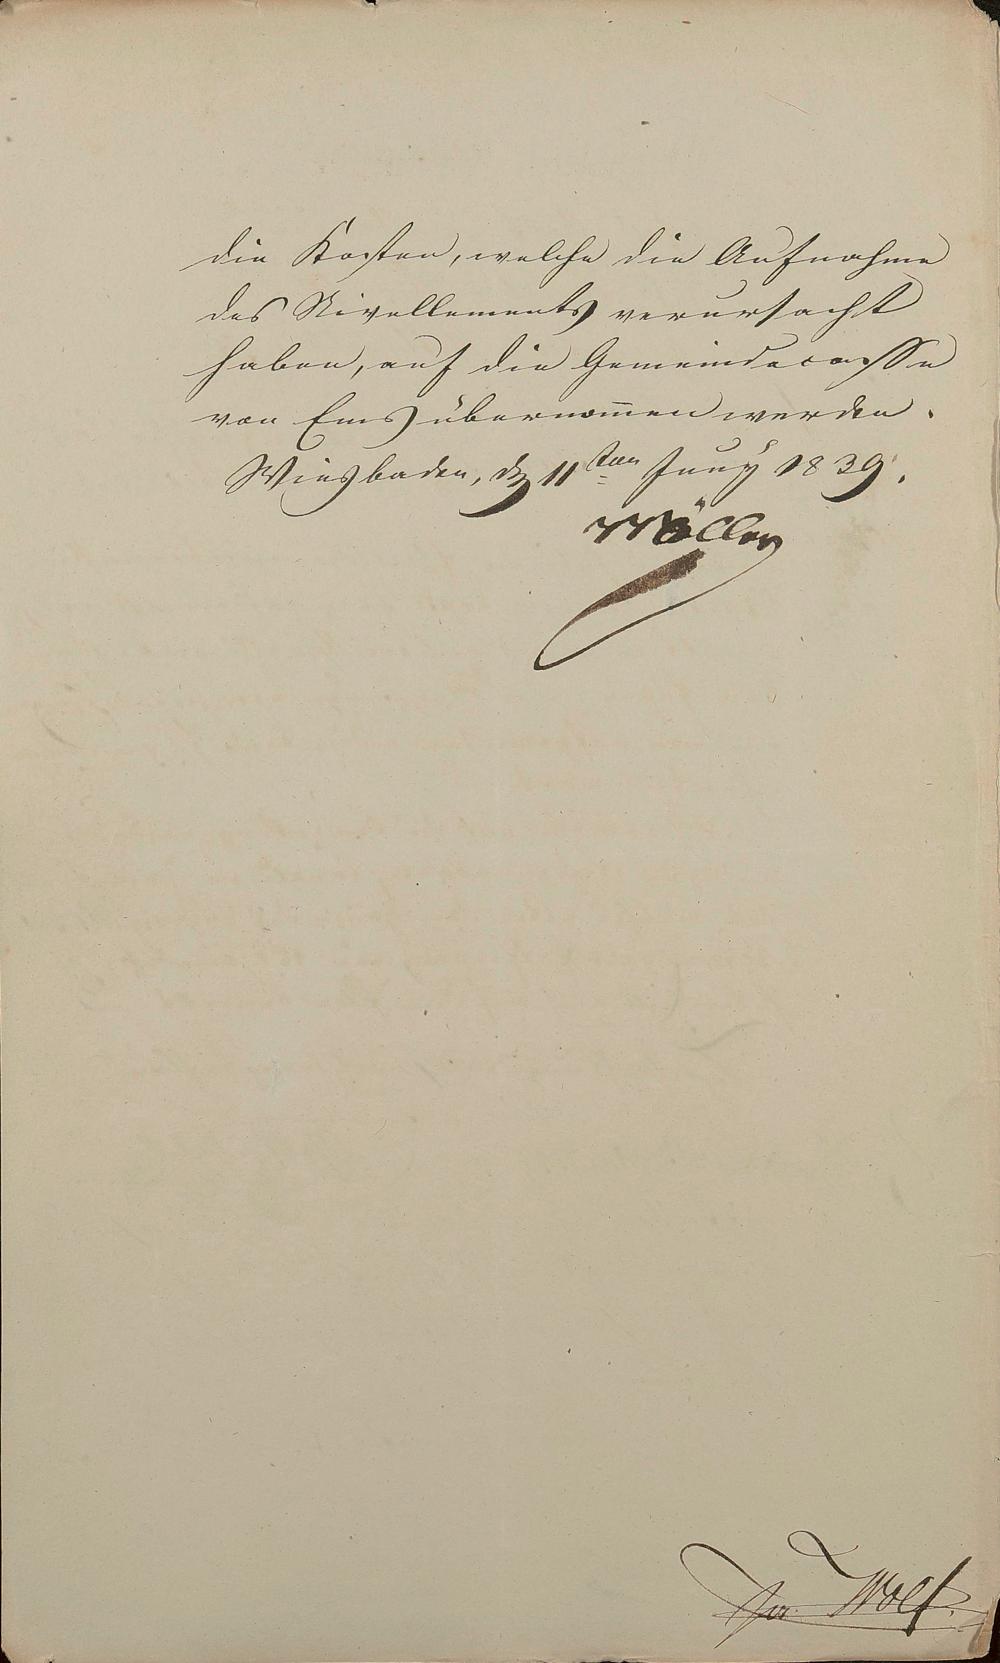 die Kosten, welche die Aufnahme
des Nivellements verursacht
haben, auf die Gemeindecasse
von Ems übernom̅en werden.
Wiesbaden, d 11ten Juny 1839.
Möller
Wolf.